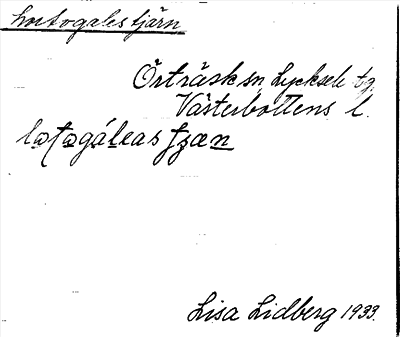 hortogalestjärn
Örträsk sn Lycksele tg.
Västerbottens l.
Lisa Lidberg 1933.